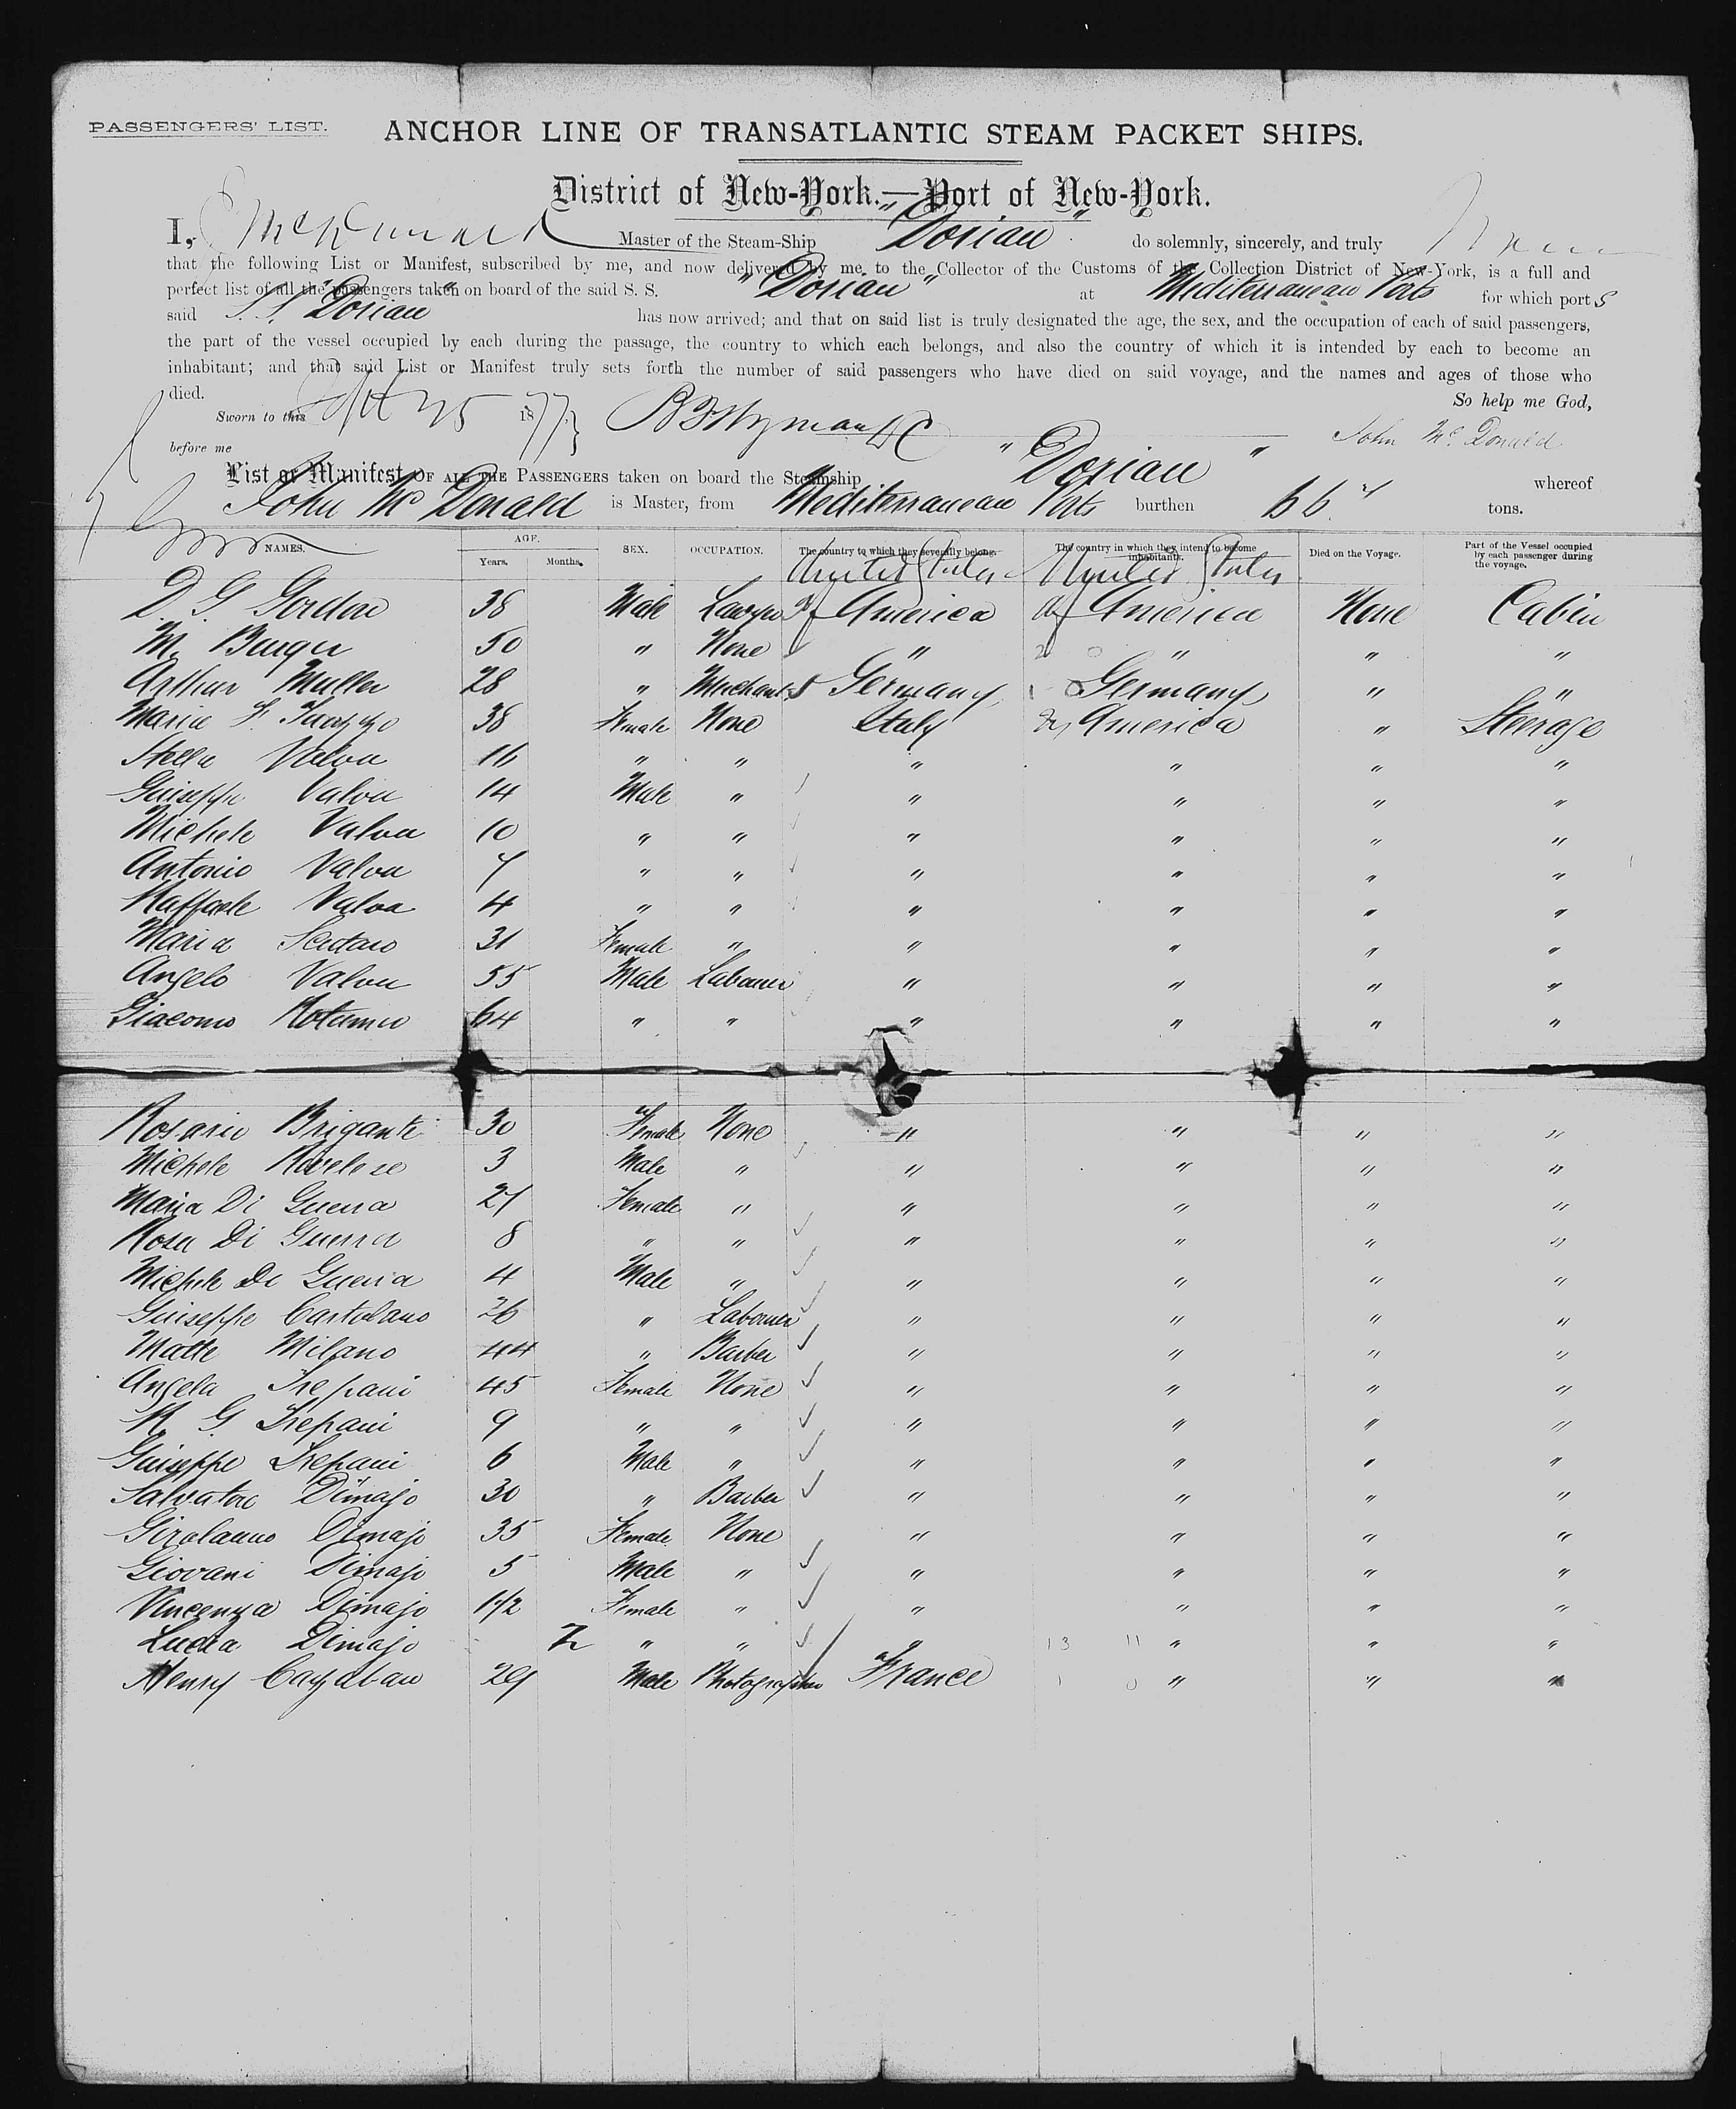 PASSENGERS' LIST.
ANCHOR LINE OF TRANSATLANTIC STEAM PACKET SHIPS.
District of New-York.—Port of New-York.
I, J McDonald Master of the Steam-Ship "Dorian" do solemnly, sincerely, and truly
that the following List or Manifest, subscribed by me, and now delivered by me to the Collector of the Customs of the Collection District of New-York, is a full and
perfect list of all the passengers taken on board of the said S. S. "Dorian" at Mediterranean Ports for which port s
said S.S. "Dorian" has now arrived; and that on said list is truly designated the age, the sex, and the occupation of each of said passengers,
the part of the vessel occupied by each during the passage, the country to which each belongs, and also the country of which it is intended by each to become an
inhabitant; and that said List or Manifest truly sets forth the number of said passengers who have died on said voyage, and the names and ages of those who
died. So help me God,
Sworn to this 25 1877 John McDonald
before me
List or Manifest OF ALL THE PASSENGERS taken on board the Steamship "Dorian" whereof
John McDonald is Master, from Mediterranean Ports burthen tons.
NAMES. AGE. Years. Months. SEX. OCCUPATION. The country to which they severally belong. The country in which they intend to become inhabitants. Died on the Voyage. Part of the Vessel occupied by each passenger during the voyage.
United States United States
D. G. Gordon 38 Male Lawyer of America of America None Cabin
M. Burger 50 " None " " " "
Arthur Muller 28 " Merchant Germany Germany " "
Maria F. 38 Female None Italy America " Steerage
Stella Valva 16 " " " " " "
Guiseppe Valva 14 Male " " " " "
Michele Valva 10 " " " " " "
Antonio Valva 7 " " " " " "
Raffaele Valva 4 " " " " " "
Maria 31 Female " " " " "
Angelo Valva 55 Male Labourer " " " "
Giacomo 64 " " " " " "
Rosario Brigante 30 Female None " " " "
Michele 3 Male " " " " "
Maria Di Guerra 27 Female " " " " "
Rosa Di Guerra 8 " " " " " "
Michele Di Guerra 4 Male " " " " "
Guiseppe Castolano 26 " Labourer " " " "
Matte Milano 44 " Barber " " " "
Angela Trepani 45 Female None " " " "
R. G. Trepani 9 " " " " " "
Guiseppe Trepani 6 Male " " " " "
Salvatore Dimajo 30 " Barber " " " "
Girolamo Dimajo 35 Female None " " " "
Giovani Dimajo 5 Male " " " " "
Vincenza Dimajo 1½ Female " " " " "
Lucia Dimajo " " " 13 11 " " "
Henry 29 Male Photographer France 1 0 " " "